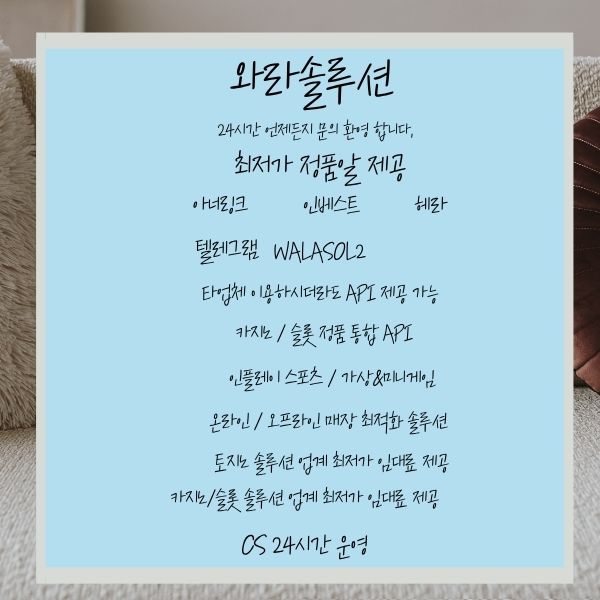 와라솔루션
24시간 언제든지 문의 환영 합니다.
최저가 정품알 제공
아너링크 인베스트 헤라
텔레그램 WALASOL2
타업체 이용하시더라도 API 제공 가능
카지노 / 슬롯 정품 통합 API
인플레이 스포츠 / 가상&미니게임
온라인 / 오프라인 매장 최적화 솔루션
토지노 솔루션 업계 최저가 임대료 제공
카지노/슬롯 솔루션 업계 최저가 임대료 제공
CS 24시간 운영